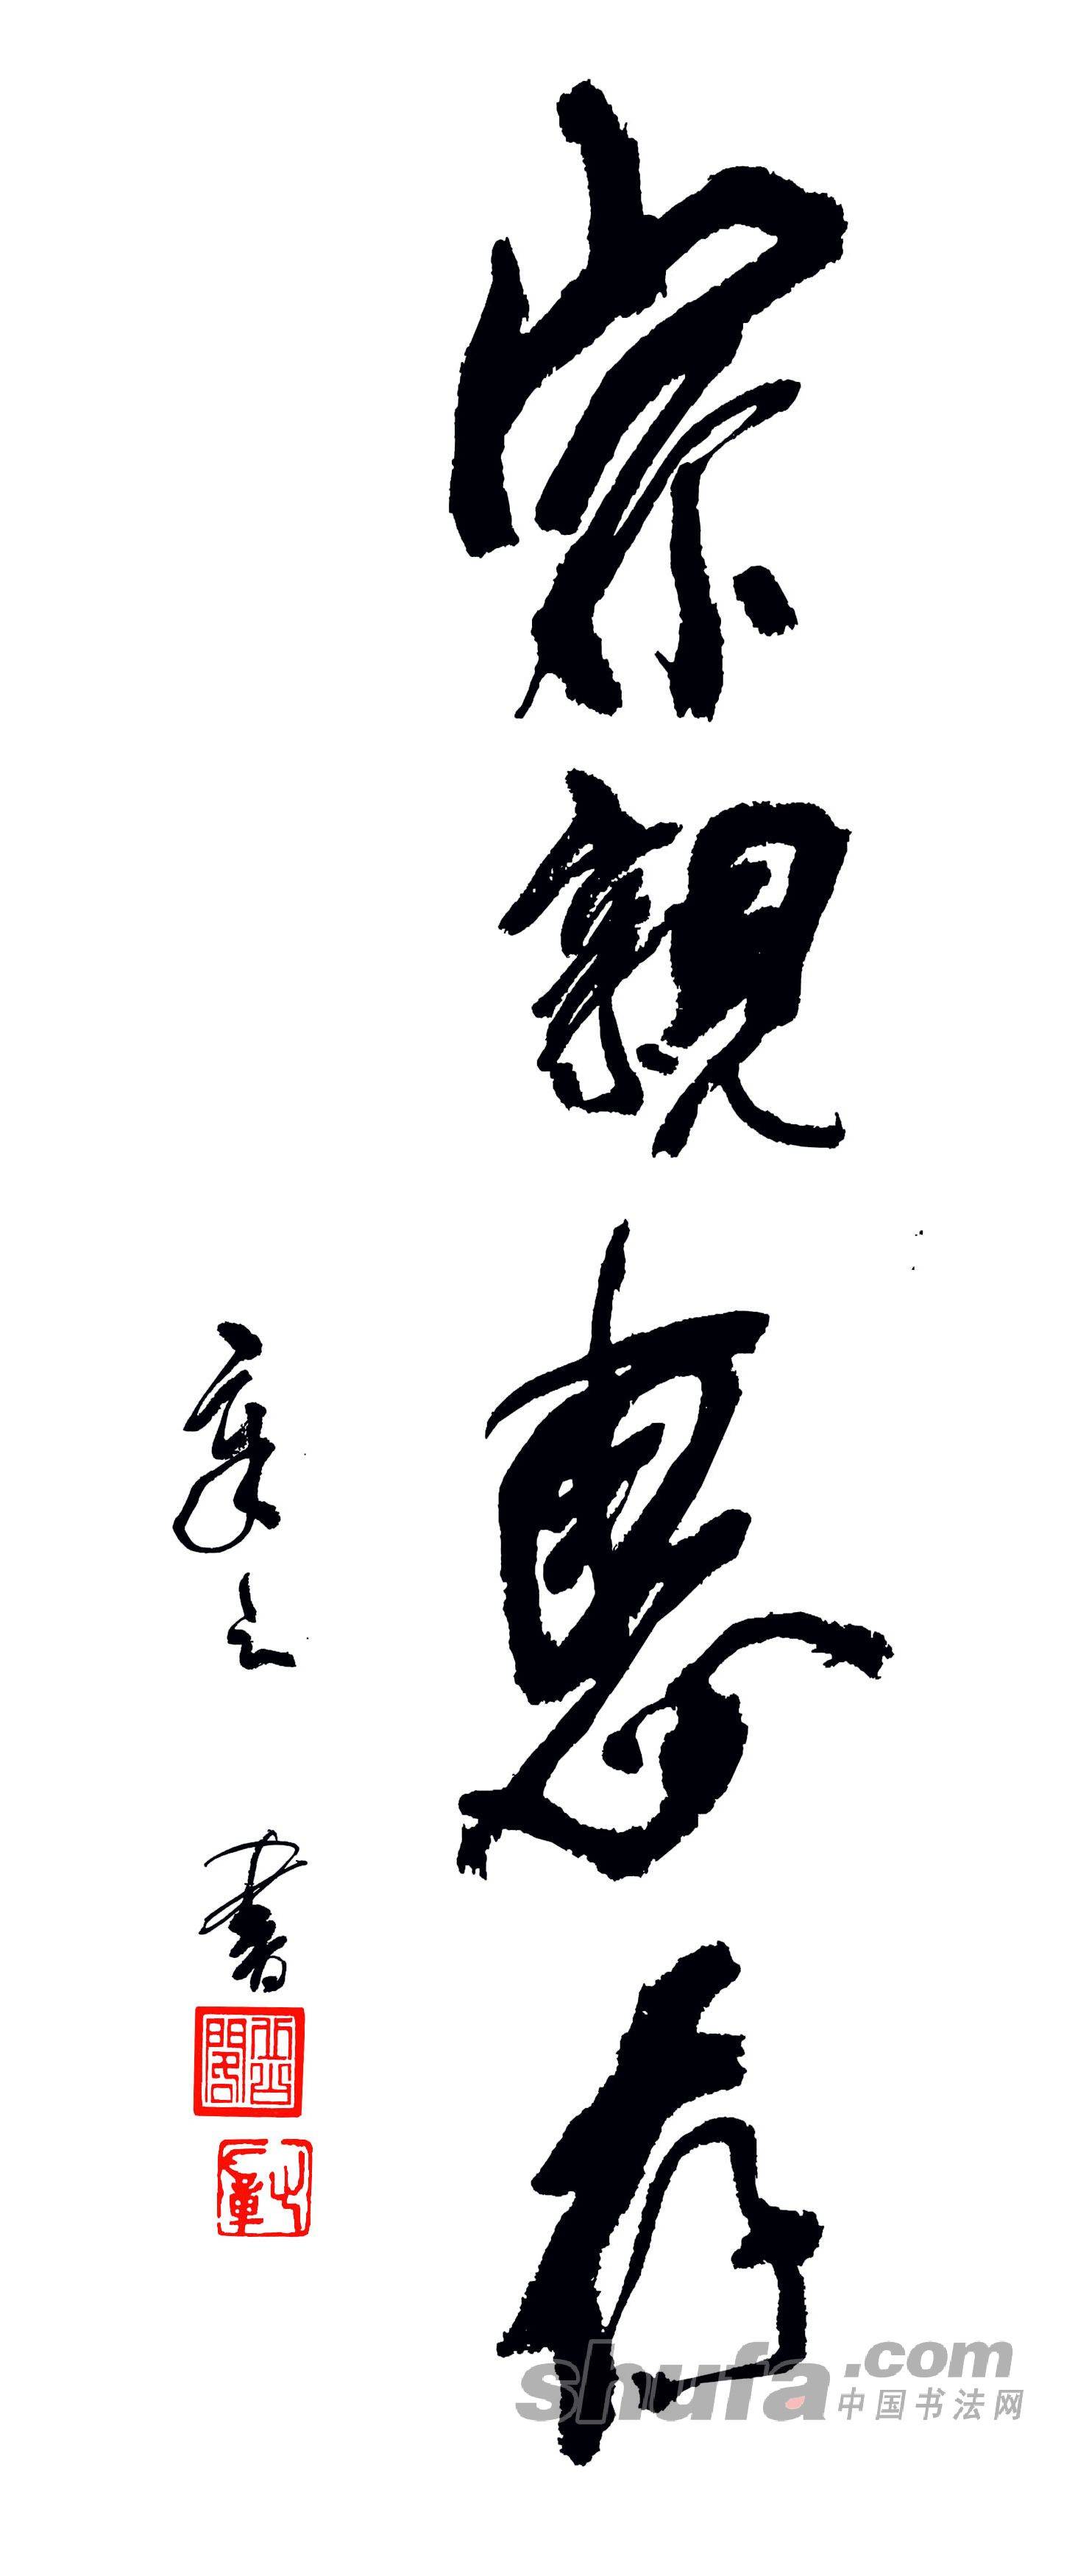 宗親惠存
之 書
shufa.com
中国书法网